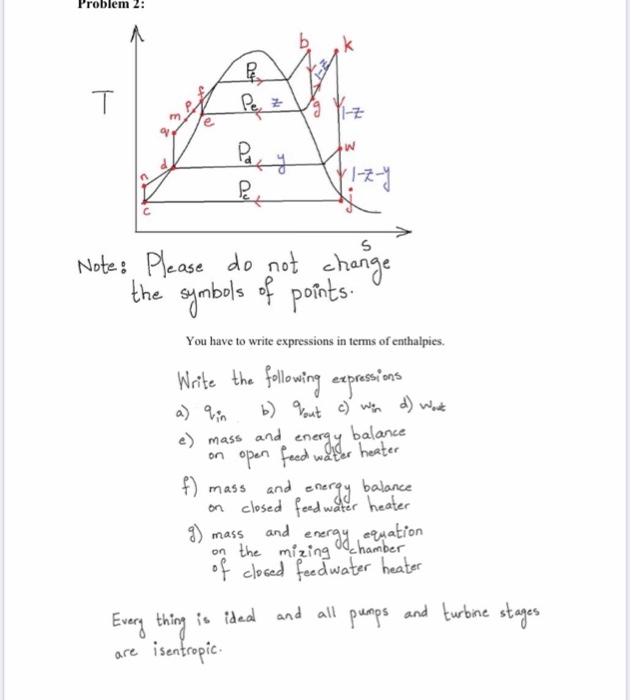 Problem 2:
b
k
P_f
f
1-z
T
P_e
z
g
1-z
P
m
e
q
w
P_d
y
d
1-z-y
n
P_c
c
j
S
Note: Please do not change
the symbols of points.
You have to write expressions in terms of enthalpies.
Write the following expressions
a) q_in b) q_out c) w_in d) w_out
e) mass and energy balance
on open feed water heater
f) mass and energy balance
on closed feedwater heater
g) mass and energy equation
on the mixing chamber
of closed feedwater heater
Every thing is ideal and all pumps and turbine stages
are isentropic.